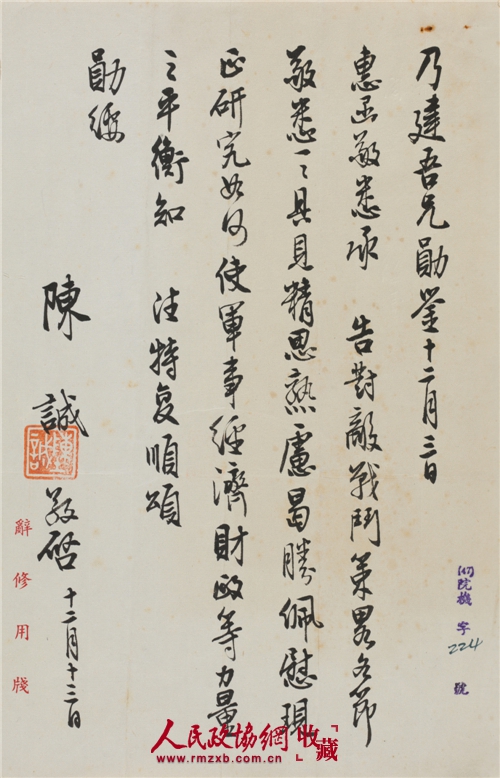 乃建吾兄勛鑒十二月三日
惠函敬悉承 告對敵戰鬥策畧各節
敬悉一一具見精思熟慮曷勝佩慰現
正研究如何使軍事經濟財政等力量
之平衡知 注特复順頌
勛綏
陳誠 敬啓 十二月十三日
陳誠
辭修用牋
院機字224號
人民政協網 收藏
www.rmzxb.com.cn